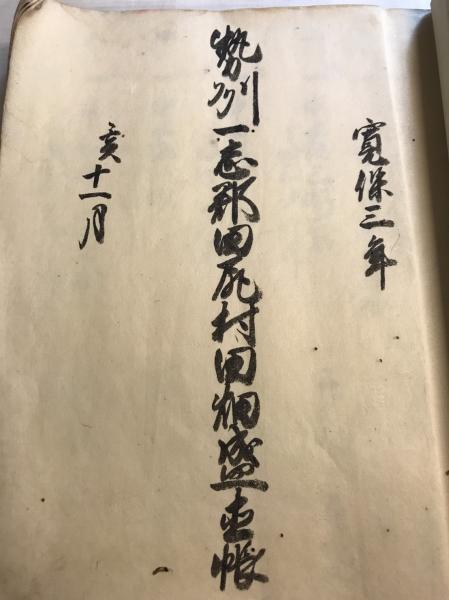 寛保三年
勢州一志郡田尻村田畑盛直帳
亥十一月